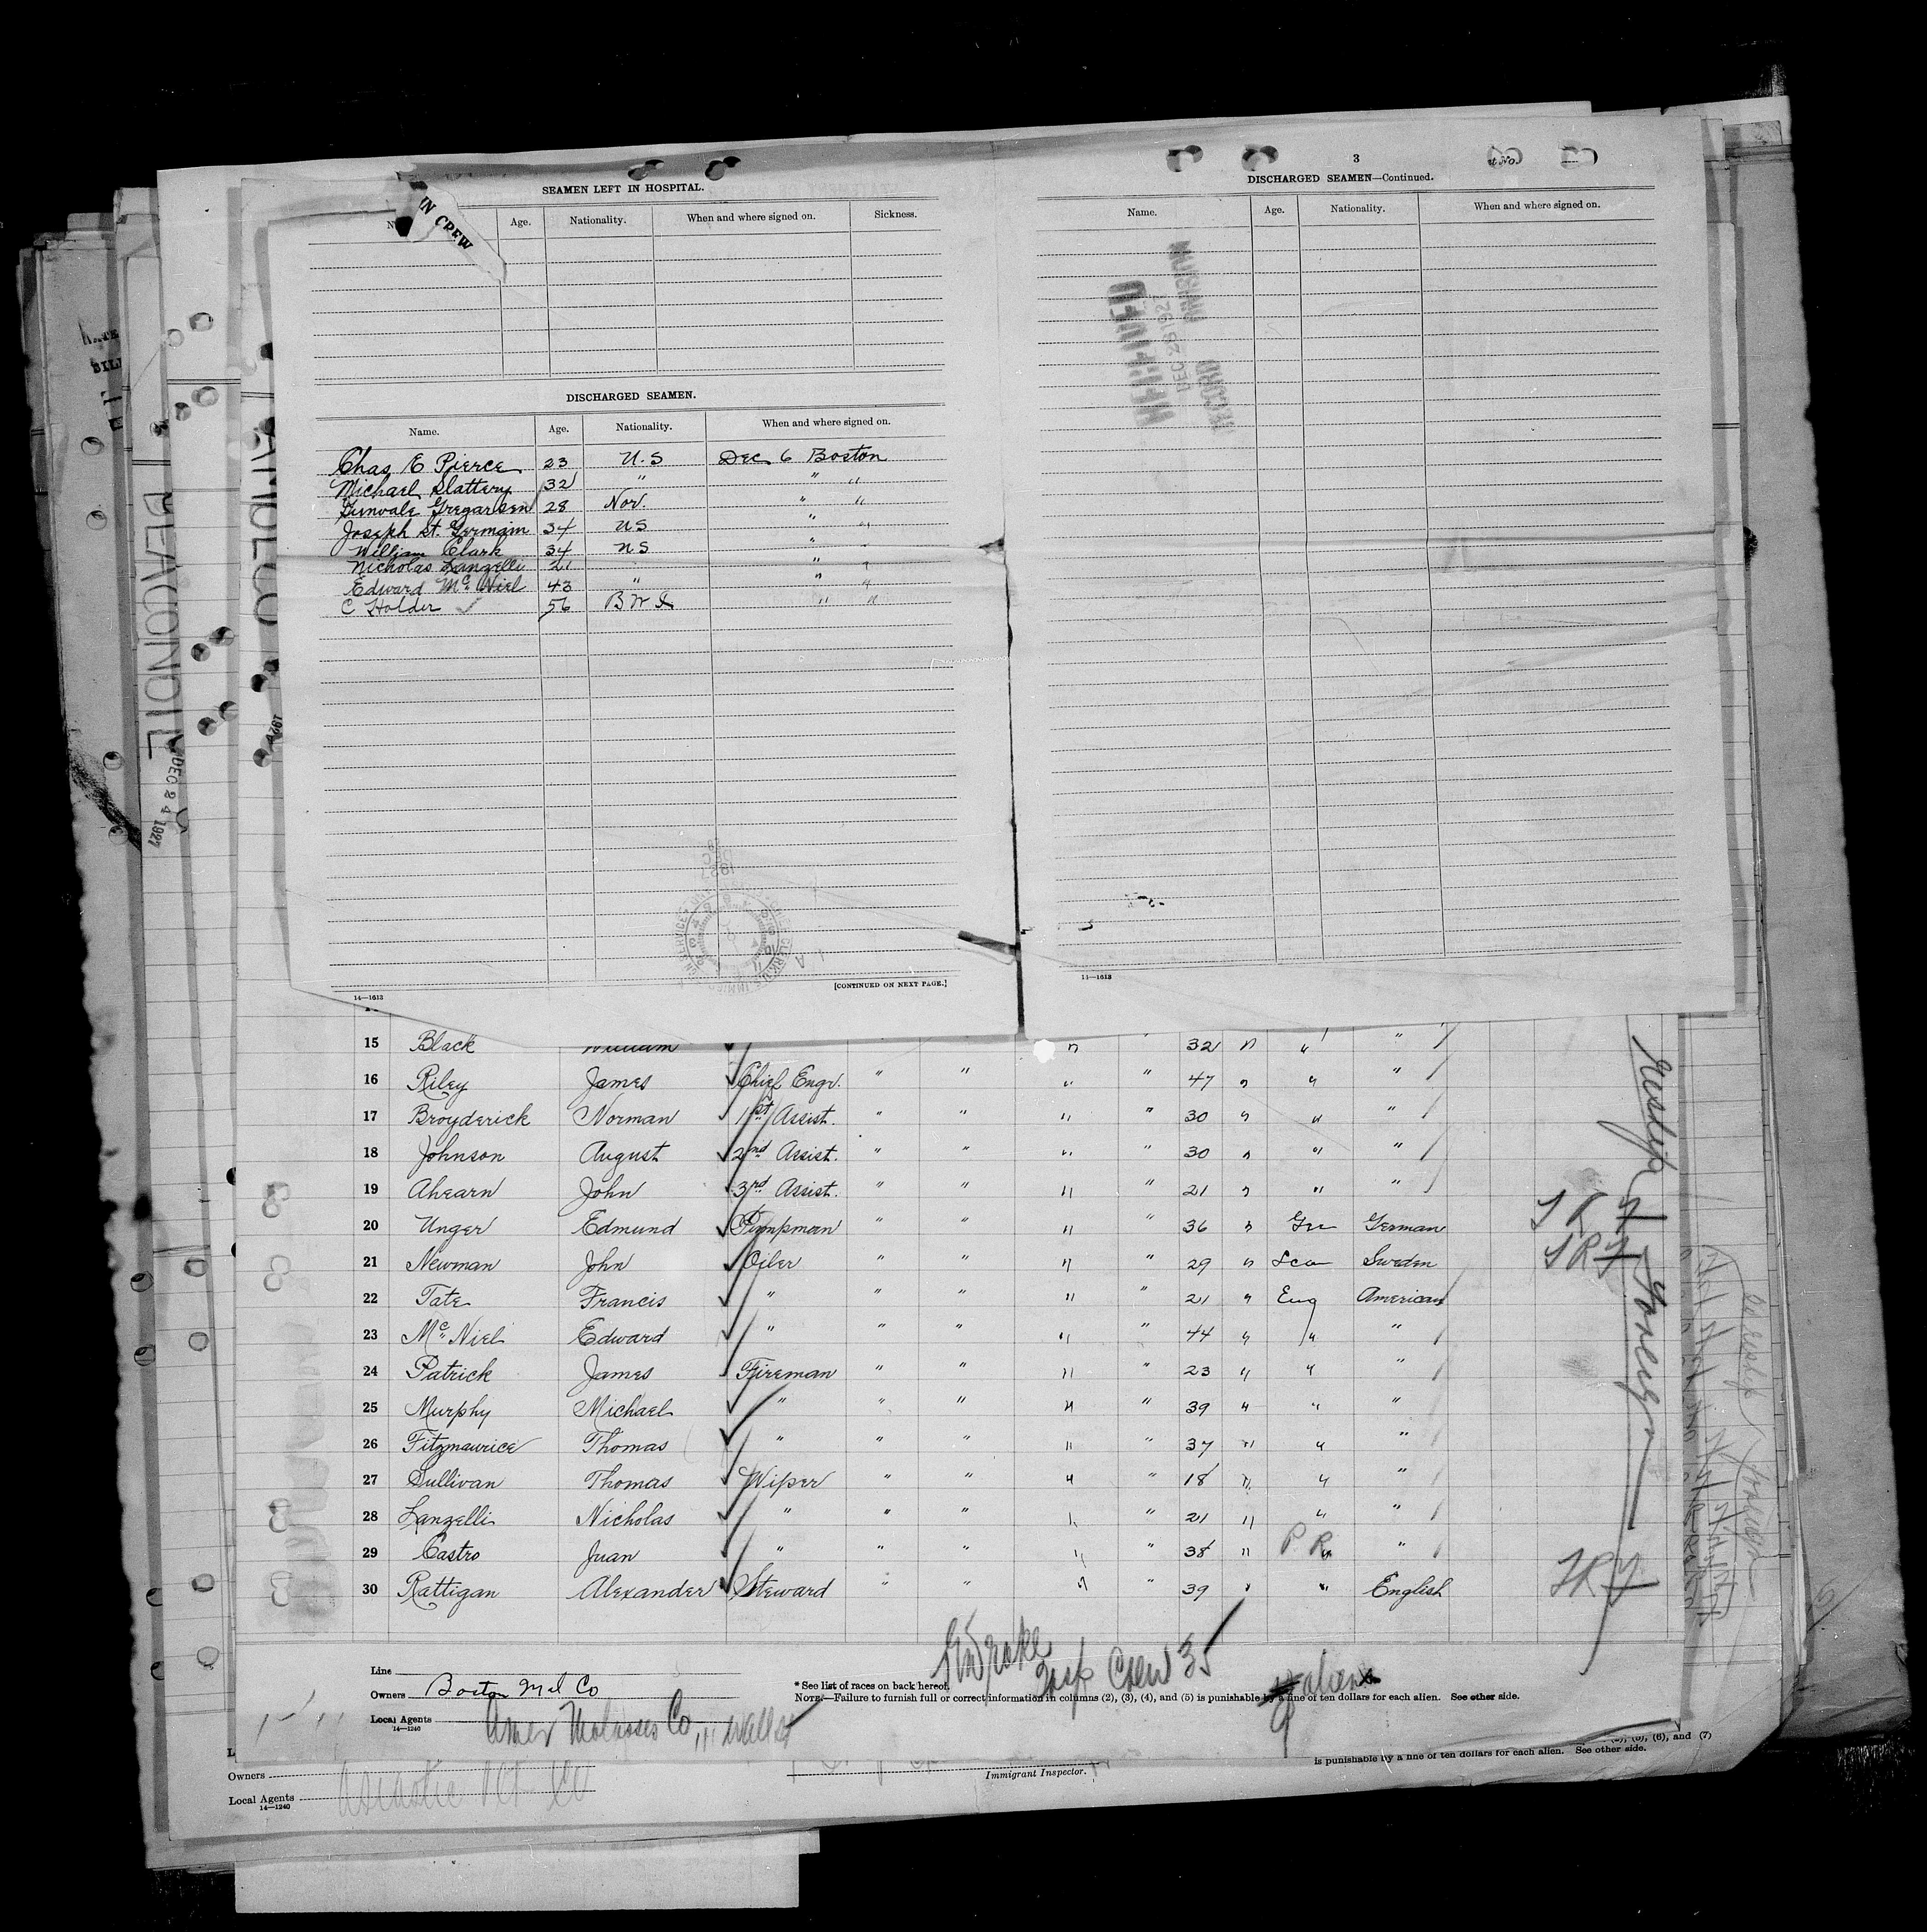 SEAMEN LEFT IN HOSPITAL.
IN CREW
Age. Nationality. When and where signed on. Sickness.
DISCHARGED SEAMEN.
Name. Age. Nationality. When and where signed on.
Chas E Pierce 23 U.S Dec 6 Boston
Michael Slattery 32 " " "
Gregarsen 28 Nor. " "
Joseph St. Germain 34 US " "
William Clark 34 US " "
Nicholas Lanzelli 21 " "
Edward Mc Niel 43 " " "
C Holder 56 B W I " "
14—1613
[CONTINUED ON NEXT PAGE.]
3
DISCHARGED SEAMEN—Continued.
Name. Age. Nationality. When and where signed on.
DEC 28 192
RECORD
14—1613
BEACONOIL
DEC 24 1927
15 Black William " " 32 " " "
16 Riley James Chief Engr. " " " " 47 " " "
17 Broyderick Norman 1st Assist. " " " " 30 " " "
18 Johnson August 2nd Assist. " " " " 30 " " "
19 Ahearn John 3rd Assist. " " " " 21 " " "
20 Unger Edmund Pumpman " " " " 36 " Ger German
21 Newman John Oiler " " " " 29 " Sca Sweden
22 Tate Francis " " " " " 21 " Eng American
23 Mc Niel Edward " " " " " 44 " " "
24 Patrick James Fireman " " " " 23 " " "
25 Murphy Michael " " " " " 39 " " "
26 Fitzmaurice Thomas " " " " " 37 " " "
27 Sullivan Thomas Wiper " " " " 18 " " "
28 Lanzelli Nicholas " " " " " 21 " " "
29 Castro Juan " " " " " 38 " P R "
30 Rattigan Alexander Steward " " " " 39 " " English
Line
Owners Boston Mol Co
Local Agents Amer Molasses Co, 111 Wall St
14—1240
Insp Crew 35
aliens
* See list of races on back hereof.
NOTE.—Failure to furnish full or correct information in columns (2), (3), (4), and (5) is punishable by a fine of ten dollars for each alien. See other side.
(6), and (7)
is punishable by a fine of ten dollars for each alien. See other side.
Immigrant Inspector.
Owners
Local Agents
14—1240